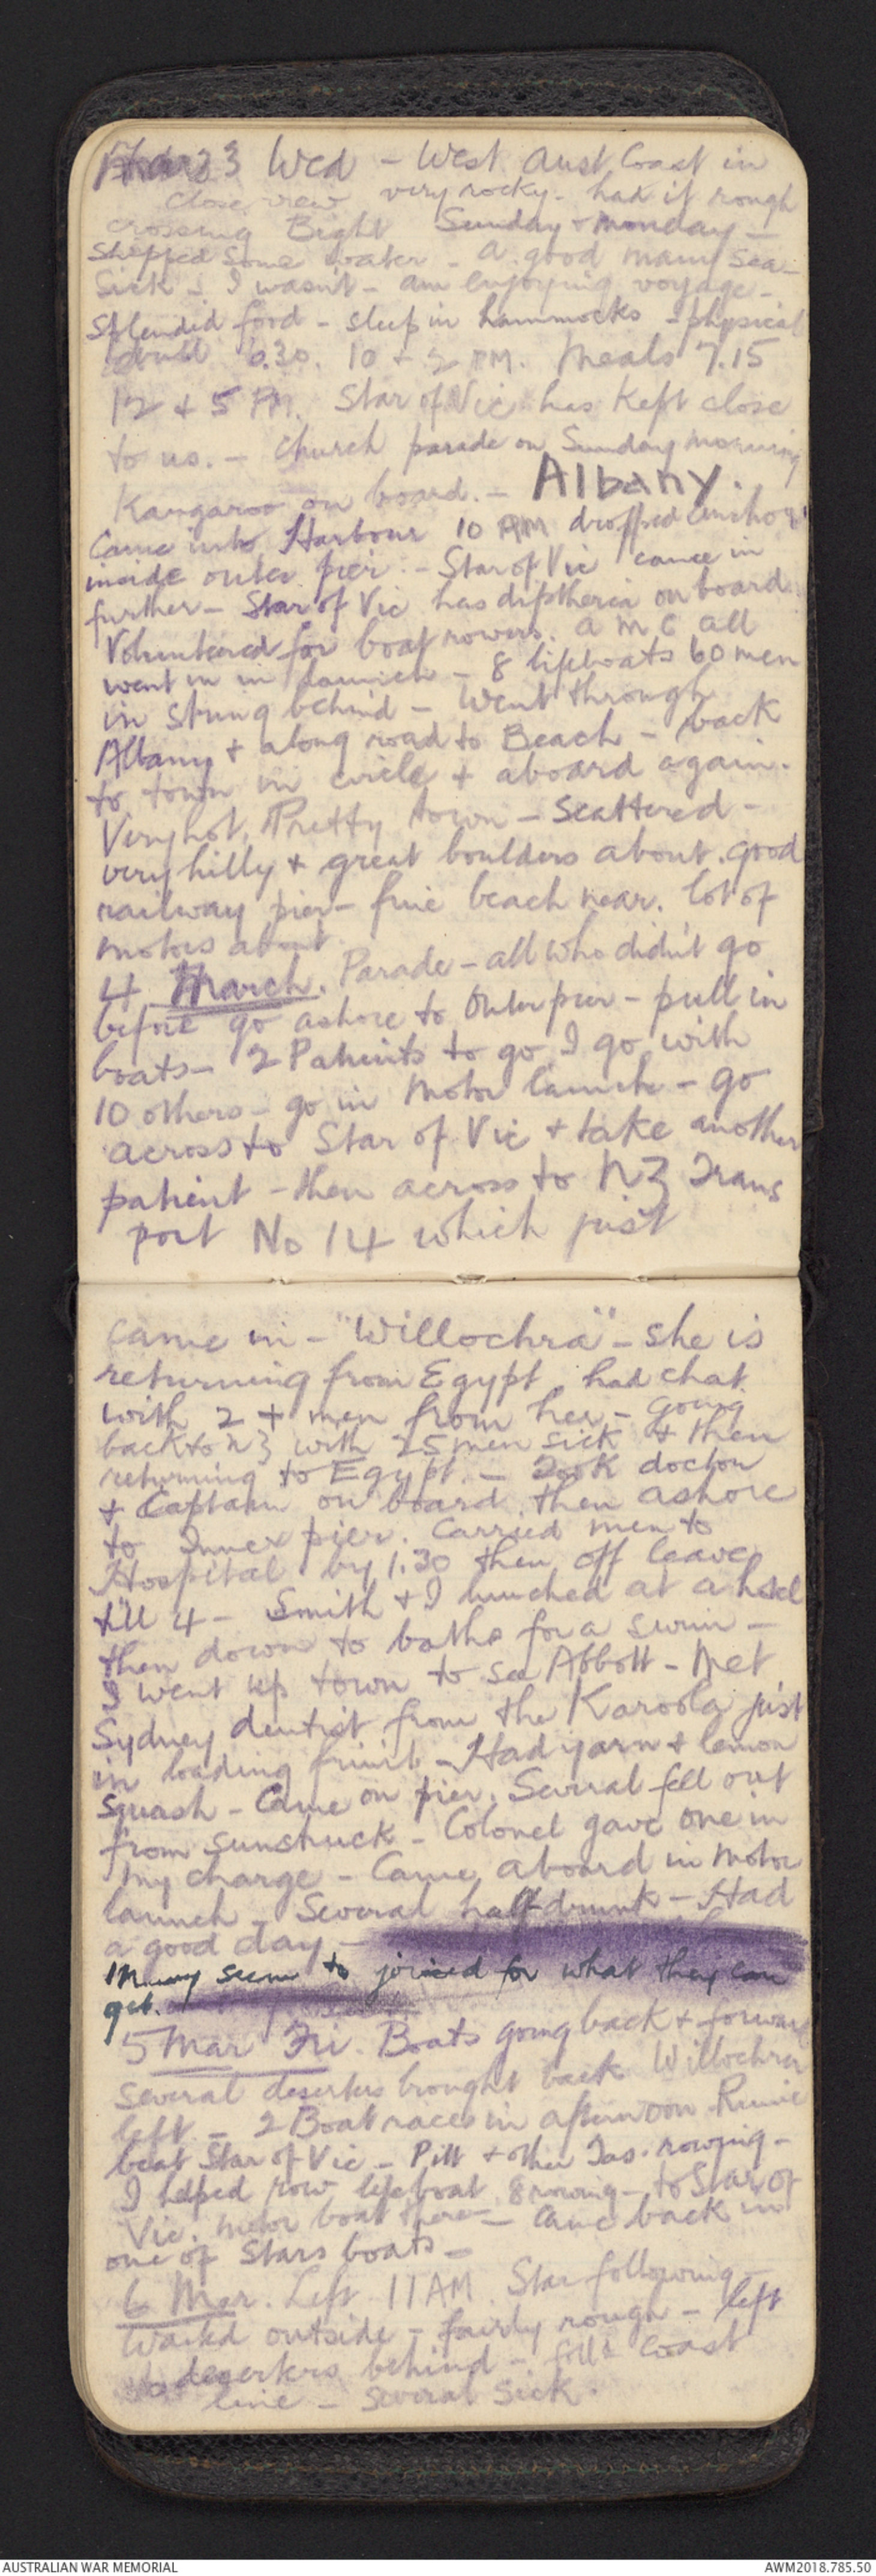 Mar 3 Wed - West Aust Coast in
close view very rocky - had it rough
crossing Bight Sunday + Monday -
Shipped some water - a good many sea-
sick - I wasn't - am enjoying voyage -
Splendid food - sleep in hammocks - physical
drill 6.30. 10 + 2 PM. Meals 7.15
12 + 5 PM. Star of Vic has kept close
to us. - Church parade on Sunday morning
Kangaroo on board. - Albany.
Came into Harbour 10 AM dropped anchor
inside outer pier. - Star of Vic came in
further - Star of Vic has diptheria on board.
Volunteered for boat rowers. A M C all
went in in launch - 8 lifeboats 60 men
in strung behind - Went through
Albany + along road to Beach - back
to town in circle + aboard again.
Very hot. Pretty town - scattered -
very hilly + great boulders about. good
railway pier - fine beach near. lot of
motors about.
4 March. Parade - all who didn't go
before go ashore to Outer pier - pull in
boats - 2 Patients to go I go with
10 others - go in motor launch - go
across to Star of Vic + take another
patient - then across to NZ Trans
port No 14 which just
came in - "Willochra" - she is
returning from Egypt had chat
with 2 + men from her - Going
back to NZ with 25 men sick + then
returning to Egypt. - Took doctor
+ Captain on board. then ashore
to Inner pier. Carried men to
Hospital by 1.30 then off leave
till 4 - Smith + I lunched at a hotel
then down to baths for a swim -
I went up town to see Abbott - Met
Sydney dentist from the Karoola just
in loading fruit - Had yarn + lemon
squash - Came on pier. Several fell out
from sunstruck - Colonel gave one in
my charge - Came aboard in motor
launch - Several half drunk - Had
a good day -
Many seem to joined for what they can
get.
5 Mar Fri. Boats going back + forward
several deserters brought back Willochra
left. - 2 Boat races in afternoon
beat Star of Vic - Pitt + other Tas. rowing -
I helped row lifeboat 8 rowing - to Star of
Vic. motor boat there - Came back in
one of Stars boats -
6 Mar. Left 11 AM. Star following -
Waited outside - fairly rough - left
deserters behind - coast
line - several sick.
AUSTRALIAN WAR MEMORIAL
AWM2018.785.50